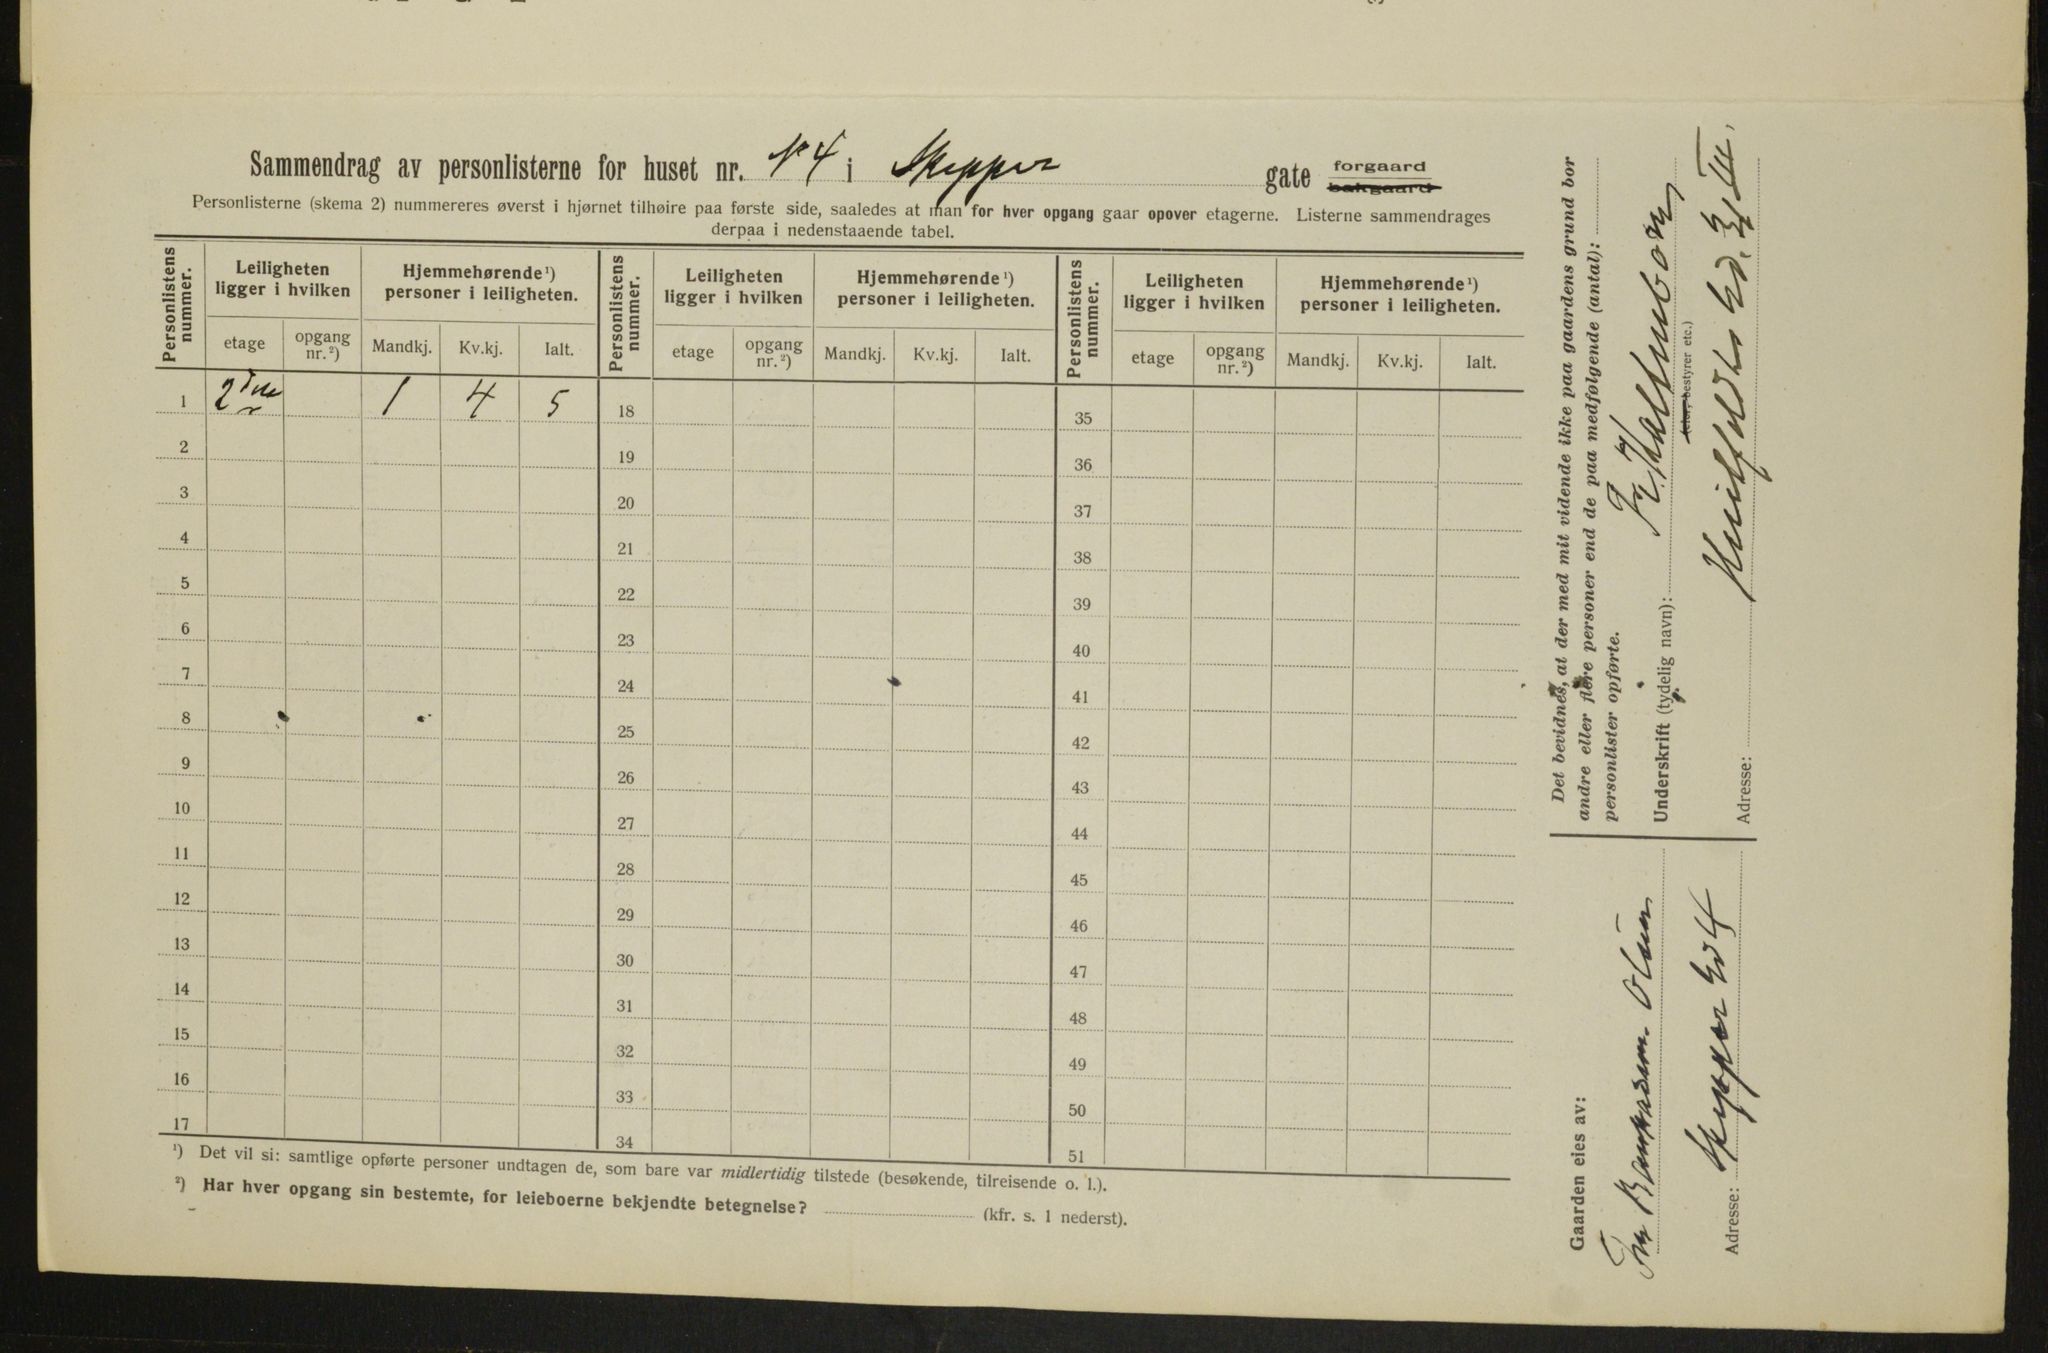 Sammendrag av personlisterne for huset nr. N 4 i Skipper gate forgaard bakgaard
Personlisterne (skema 2) nummereres øverst i hjørnet tilhøire paa første side, saaledes at man for hver opgang gaar opover etagerne. Listerne sammendrages
derpaa i nedenstaaende tabel.
Personlistens nummer. Leiligheten ligger i hvilken Hjemmehørende ¹) personer i leiligheten. Personlistens nummer. Leiligheten ligger i hvilken Hjemmehørende ¹) personer i leiligheten. Personlistens nummer. Leiligheten ligger i hvilken Hjemmehørende ¹) personer i leiligheten.
etage opgang nr. ²) Mandkj. Kv.kj. Ialt. etage opgang nr. ²) Mandkj. Kv.kj. Ialt. etage opgang nr. ²) Mandkj. Kv.kj. Ialt.
1 2den 1 4 5 18 35
2 19 36
3 20 37
4 21 38
5 22 39
6 23 40
7 24 41
8 25 42
9 26 43
10 27 44
11 28 45
12 29 46
13 30 47
14 31 48
15 32 49
16 33 50
17 34 51
¹) Det vil si: samtlige opførte personer undtagen de, som bare var midlertidig tilstede (besøkende, tilreisende o. l.).
²) Har hver opgang sin bestemte, for leieboerne bekjendte betegnelse? (kfr. s. 1 nederst).
Det bevidnes, at der med mit vidende ikke paa gaardens grund bor
andre eller flere personer end de paa medfølgende (antal):
personlister opførte.
Underskrift (tydelig navn): Fr. Kaltenborn
(eier, bestyrer etc.)
Adresse: Huitfeldts Gd. III.
Gaarden eies av:
Olsen
Adresse: Skipper Gd 4